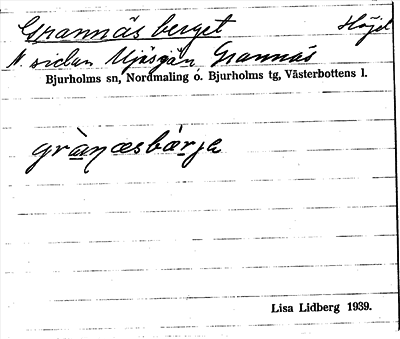 Grannäs berget Höjd
N. sidan Öjsjön Grannäs
Bjurholms sn, Nordmaling o. Bjurholms tg, Västerbottens l.
grànæsbærja
Lisa Lidberg 1939.